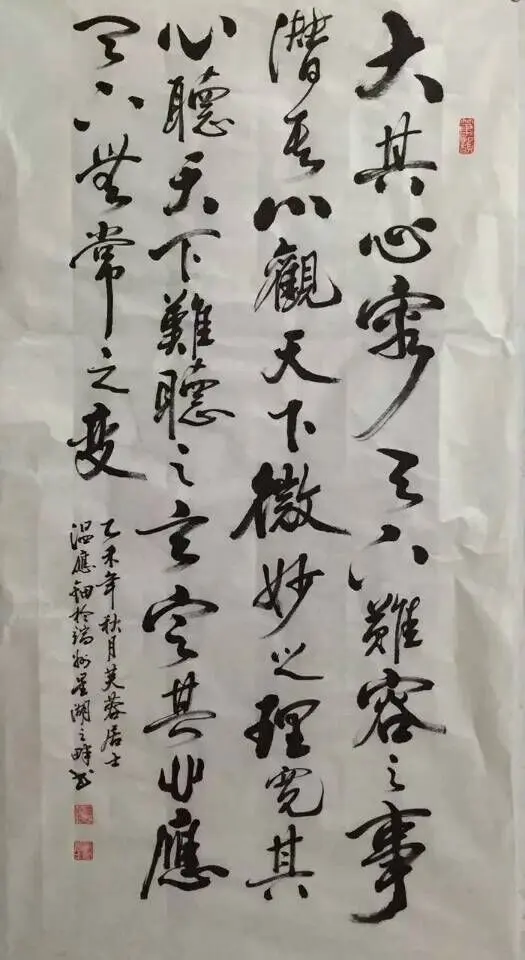 大其心容天下難容之事
潛吾心觀天下微妙之理寬其
心聽天下難聽之言定其心應
天下無常之變
乙未年秋月芙蓉居士
温應於端州星湖之畔書